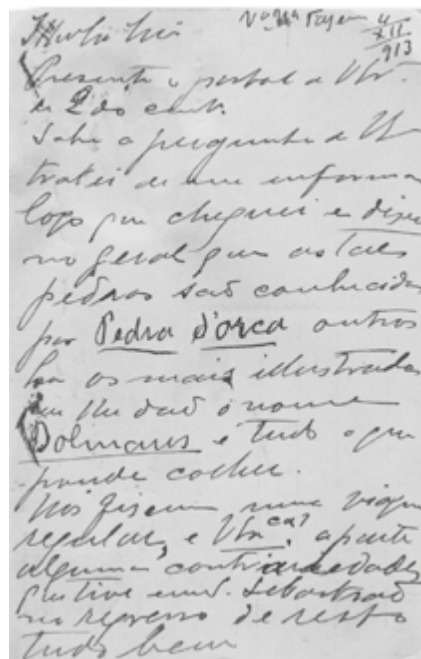 4
XII
913
Presente o postal de V.
de 2 do cort.
Sobre a pergunta de V.
tratei de me informar
logo que cheguei e dizem
no geral que as taes
pedras são conhecidas
por Pedra d'orca outros
os mais illustrados
lhe dão o nome
Dolmans é tudo o que
poude colher.
Nós fizemos uma viagem
regular, e a parte
algumas contrariedades
tive Sebastião
no regresso de resto
tudo bem